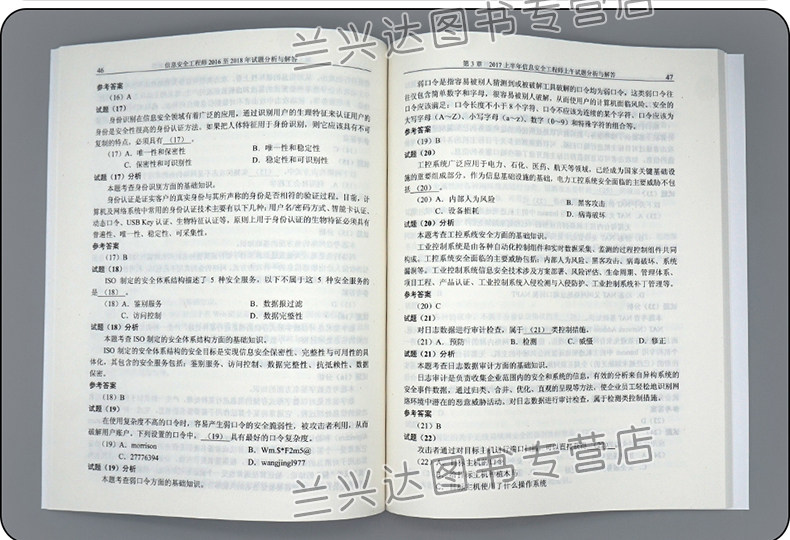 兰兴达图书专营店
46 信息安全工程师 2016 至 2018 年试题分析与解答
参考答案
（16）A
试题（17）
身份识别在信息安全领域有着广泛的应用，通过识别用户的生理特征来认证用户的
身份是安全性很高的身份认证方法。如果把人体特征用于身份识别，则它应该具有不可
复制的特点，必须具有（17）。
（17）A．唯一性和保密性 B．唯一性和稳定性
C．保密性和可识别性 D．稳定性和可识别性
试题（17）分析
本题考查身份识别方面的基础知识。
身份认证是证实客户的真实身份与其所声称的身份是否相符的验证过程。目前，计
算机及网络系统中常用的身份认证技术主要有以下几种：用户名/密码方式、智能卡认证、
动态口令、USB Key 认证、生物特征认证等。原则上用于身份认证的生物特征必须具有
普遍性、唯一性、稳定性、可采集性。
参考答案
（17）B
试题（18）
ISO 制定的安全体系结构描述了 5 种安全服务，以下不属于这 5 种安全服务的
是（18）。
（18）A．鉴别服务 B．数据报过滤
C．访问控制 D．数据完整性
试题（18）分析
本题考查 ISO 制定的安全体系结构方面的基础知识。
ISO 制定的安全体系结构的安全目标是实现信息安全保密性、完整性与可用性的具
体化，其包含的安全服务包括：鉴别服务、访问控制、数据完整性、抗抵赖性、数据
保密。
参考答案
（18）B
试题（19）
在使用复杂度不高的口令时，容易产生弱口令的安全脆弱性，被攻击者利用，从而
破解用户账户，下列设置的口令中，（19）具有最好的口令复杂度。
（19）A．morrison B．Wm.$*F2m5@
C．27776394 D．wangjing1977
试题（19）分析
本题考查弱口令方面的基础知识。
第 3 章 2017 上半年信息安全工程师上午试题分析与解答 47
弱口令是指容易被别人猜测到或被破解工具破解的口令均为弱口令。这类弱口令往
往仅包含简单数字和字母，很容易被别人破解，从而使用户的计算机面临风险。安全的
口令应该满足：口令长度不小于 8 个字符、口令不应该为连续的某个字符、口令应该为
大写字母（A～Z）、小写字母（a～z）、数字（0～9）和特殊字符的组合等。
参考答案
（19）B
试题（20）
工控系统广泛应用于电力、石化、医药、航天等领域，已经成为国家关键基础设
施的重要组成部分。作为信息基础设施的基础，电力工控系统安全面临的主要威胁不包
括（20）。
（20）A．内部人为风险 B．黑客攻击
C．设备损耗 D．病毒破坏
试题（20）分析
本题考查工控系统安全方面的基础知识。
工业控制系统是由各种自动化控制组件和实时数据采集、监测的过程控制组件共同
构成。工控系统安全面临的主要威胁包括：内部人为风险、黑客攻击、病毒破坏、系统
漏洞等。工业控制系统信息安全技术涉及方案部署、风险评估、生命周期、管理体系、
项目工程、产品认证、工业控制系统入侵检测与入侵防护、工业控制系统补丁管理等。
参考答案
（20）C
试题（21）
对日志数据进行审计检查，属于（21）类控制措施。
（21）A．预防 B．检测 C．威慑 D．修正
试题（21）分析
本题考查日志数据审计方面的基础知识。
日志审计是负责收集企业范围内的安全和系统的信息，有效的分析来自异构系统的
安全事件数据，通过归类、合并、优化、直观的呈现等方法，使企业员工轻松地识别网
络环境中潜在的恶意威胁活动。对日志数据进行审计检查，属于检测类控制措施。
参考答案
（21）B
试题（22）
攻击者通过对目标主机进行端口扫描
（22）
C．主机使用了什么操作系统
兰兴达图书专营店